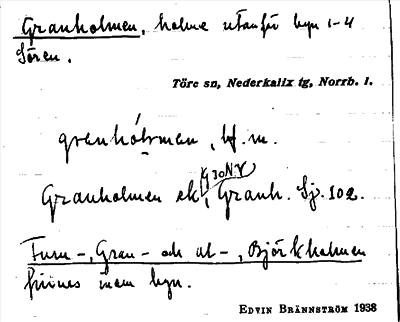 Granholmen, holme utanför byn 1-4
Sören.
Töre sn, Nederkalix tg, Norrb. l.
granhólman, bf. m.
G 30 NV
Granholmen ek, Granh. Sj. 102.
Furu-, Gran- och al-, Björkholmen
finnes inom byn.
EDVIN BRÄNNSTRÖM 1938